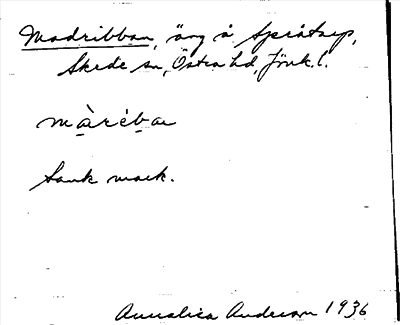 Madribban, äng å Språtorp,
Skede sn, Östra hd, Jönk. l.
màrèba
Sank mark.
Annalisa Anderson 1936